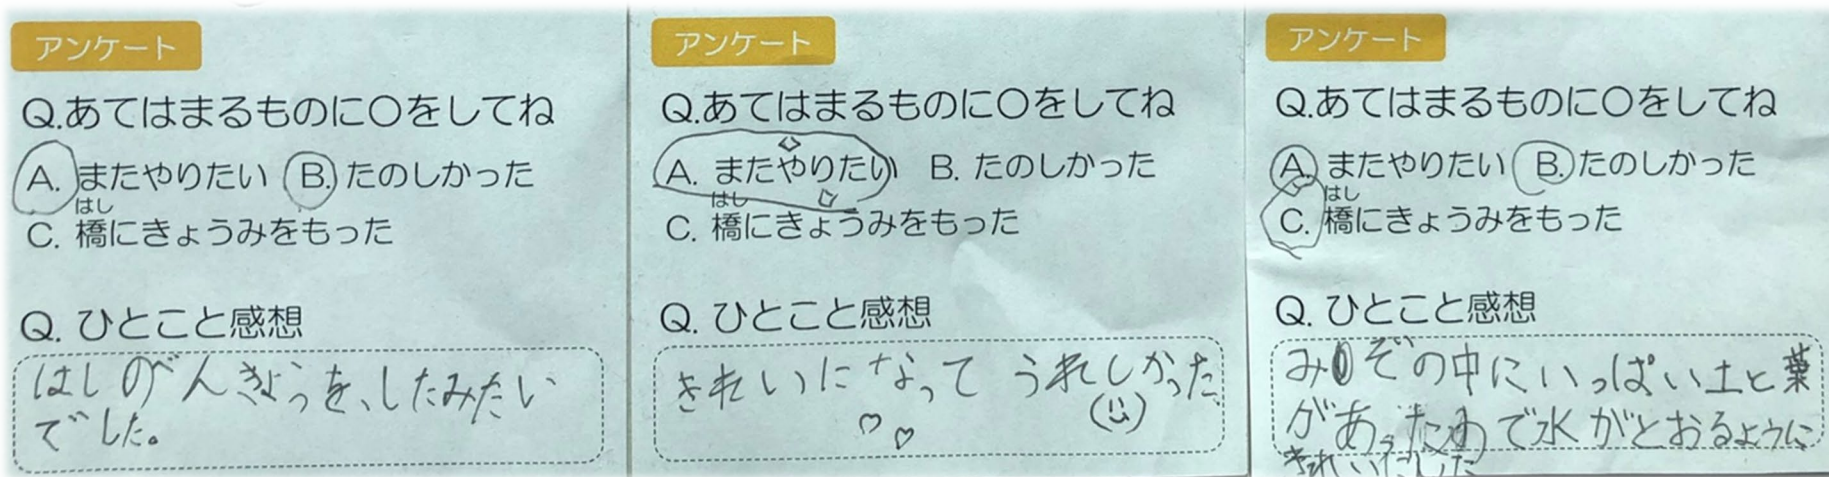 アンケート
Q.あてはまるものに〇をしてね
A. またやりたい B. たのしかった
はし
C. 橋にきょうみをもった
Q. ひとこと感想
はしのべんきょうを、したみたい
でした。
アンケート
Q.あてはまるものに〇をしてね
A. またやりたい B. たのしかった
はし
C. 橋にきょうみをもった
Q. ひとこと感想
きれいになって うれしかった
アンケート
Q.あてはまるものに〇をしてね
A. またやりたい B. たのしかった
はし
C. 橋にきょうみをもった
Q. ひとこと感想
みぞの中にいっぱい土と葉
があったので水がとおるように
きれいにした